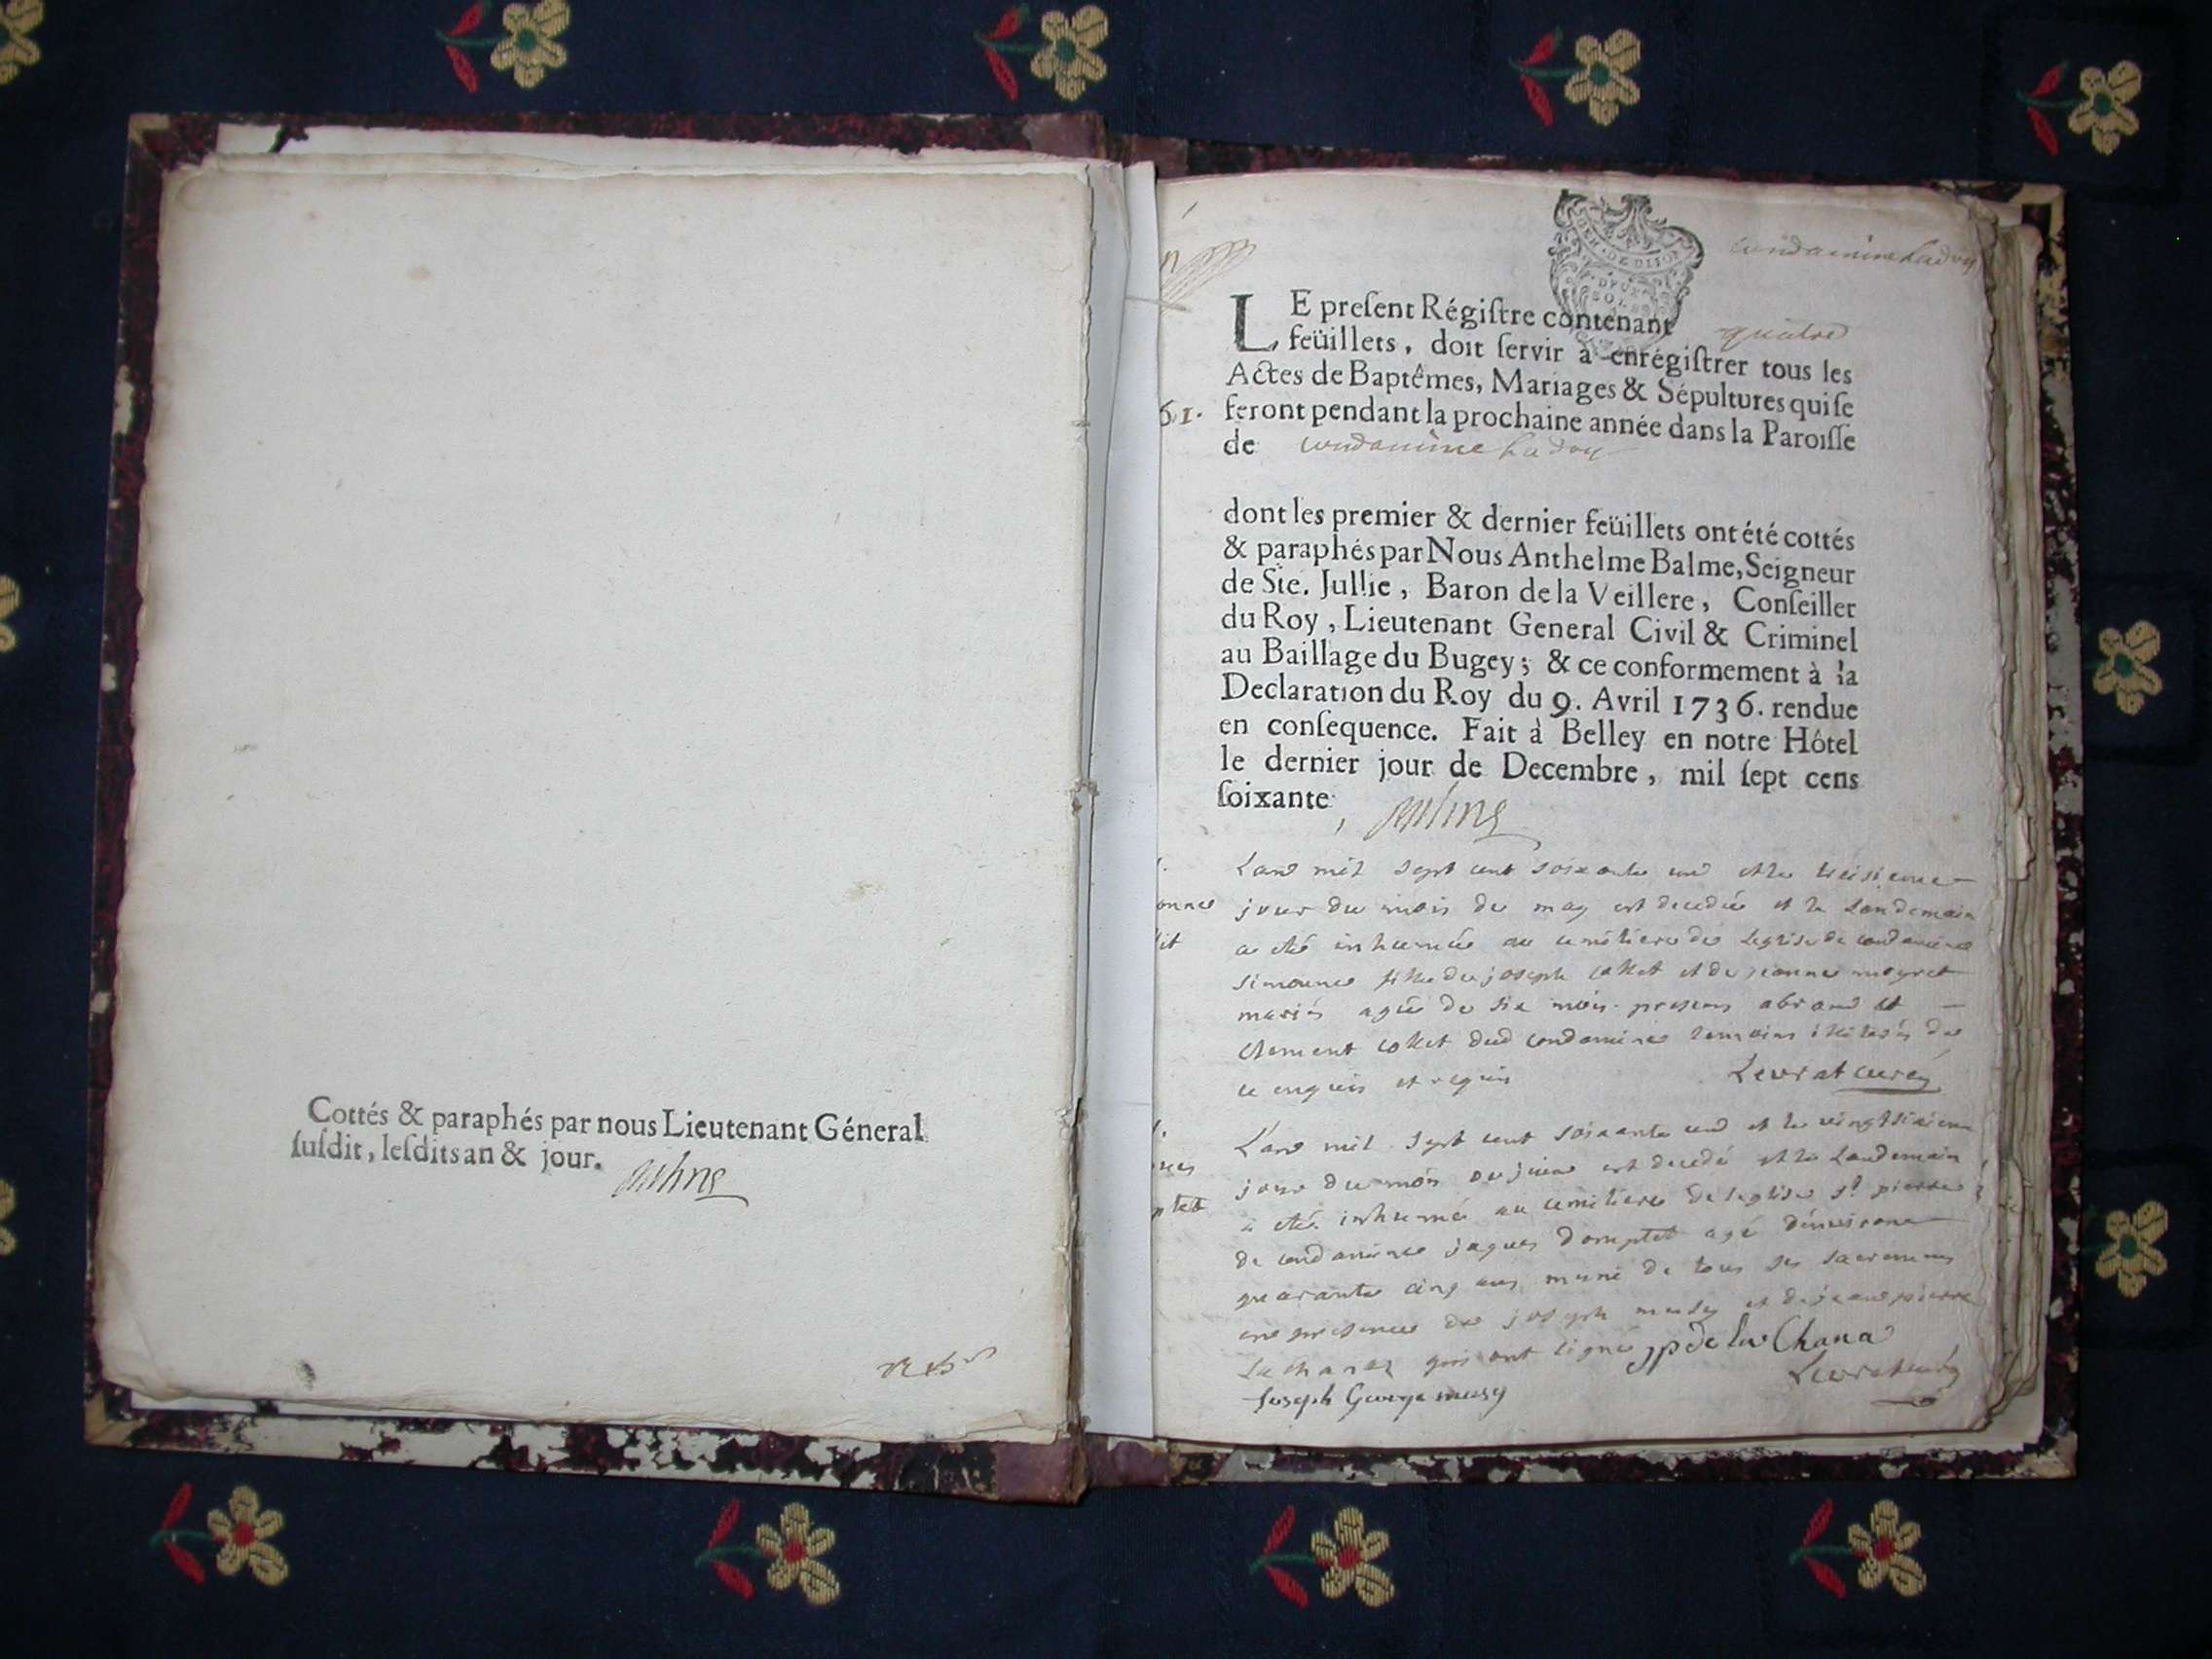 Cottés & paraphés par nous Lieutenant Géneral
ſuſdit, leſdits an & jour.
GEN. DE DIJON
DEUX
SOLS
condamine ladoy
LE preſent Régiſtre contenant quatre
feüillets, doit ſervir à enrégiſtrer tous les
Actes de Baptêmes, Mariages & Sépultures qui ſe
61. feront pendant la prochaine année dans la Paroiſſe
de condamine ladoy
dont les premier & dernier feüillets ont été cottés
& paraphés par Nous Anthelme Balme, Seigneur
de Ste. Jullie, Baron de la Veillere, Conſeiller
du Roy, Lieutenant General Civil & Criminel
au Baillage du Bugey; & ce conformement à la
Declaration du Roy du 9. Avril 1736. rendue
en conſequence. Fait à Belley en notre Hôtel
le dernier jour de Decembre, mil ſept cens
ſoixante
Lan mil sept cent soixante un et le treisieme
jour du mois de may est decedée et le landemain
a eté inhumée au cimetiere de leglise de condamine
simonne fille de joseph collet et de jeanne
mariés agée de six mois presens et
clement collet dud condamine temoins illiterés de
ce enquis et requis Levrat curé
L'an mil sept cent soixante un et le vingt sixieme
jour du mois de juin est decedé et le landemain
a eté inhumé au cimetiere de leglise st pierre
de condamine jaques domptet agé denviron
quarante cinq ans muni de tous ses sacremens
en presence de joseph musy et de jean pierre
Lachana qui ont signé jp de La Chana
Joseph George musy Levrat curé